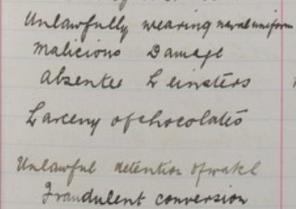 Unlawfully wearing naval uniform
Malicious Damage
Absentee Leinsters
Larceny of chocolates
Unlawful detention of
Fraudulent conversion